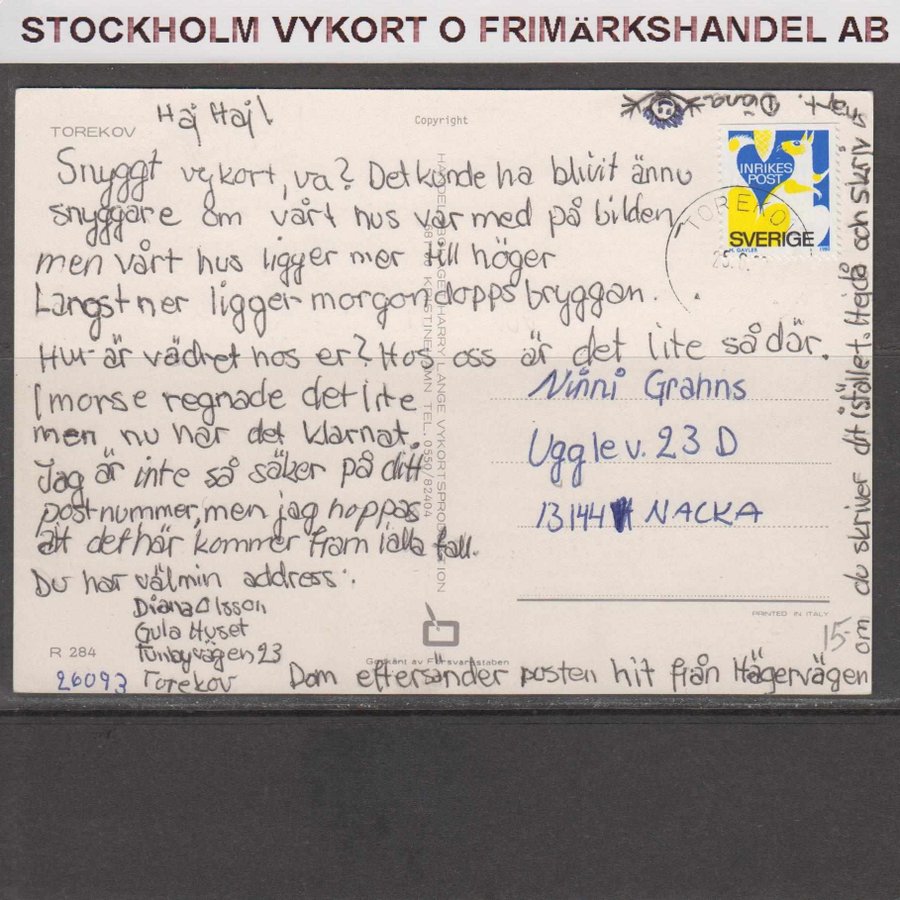 STOCKHOLM VYKORT O FRIMÄRKSHANDEL AB
TOREKOV
Haj Haj!
Copyright
Snyggt vykort, va? Det kunde ha blivit ännu
snyggare om vårt hus var med på bilden
men vårt hus ligger mer till höger
Längst ner ligger morgondopps bryggan.
Hur är vädret hos er? Hos oss är det lite sådär.
I morse regnade det lite
men nu har det klarnat.
Jag är inte så säker på ditt
postnummer, men jag hoppas
att det här kommer fram i alla fall.
Du har väl min address:
Diana Olsson
Gula Huset
Tunbyvägen 23
26093 Torekov
Dom eftersänder posten hit från Hägervägen
om du skriver dit istället. Hejdå och skriv
snart. Diana
INRIKES
POST
SVERIGE
TOREKO
Ninni Grahns
Ugglev. 23 D
13144 NACKA
681 00 KRISTINEHAMN TEL. 0550/82404
PRINTED IN ITALY
15-
R 284
Godkänt av Försvarsstaben